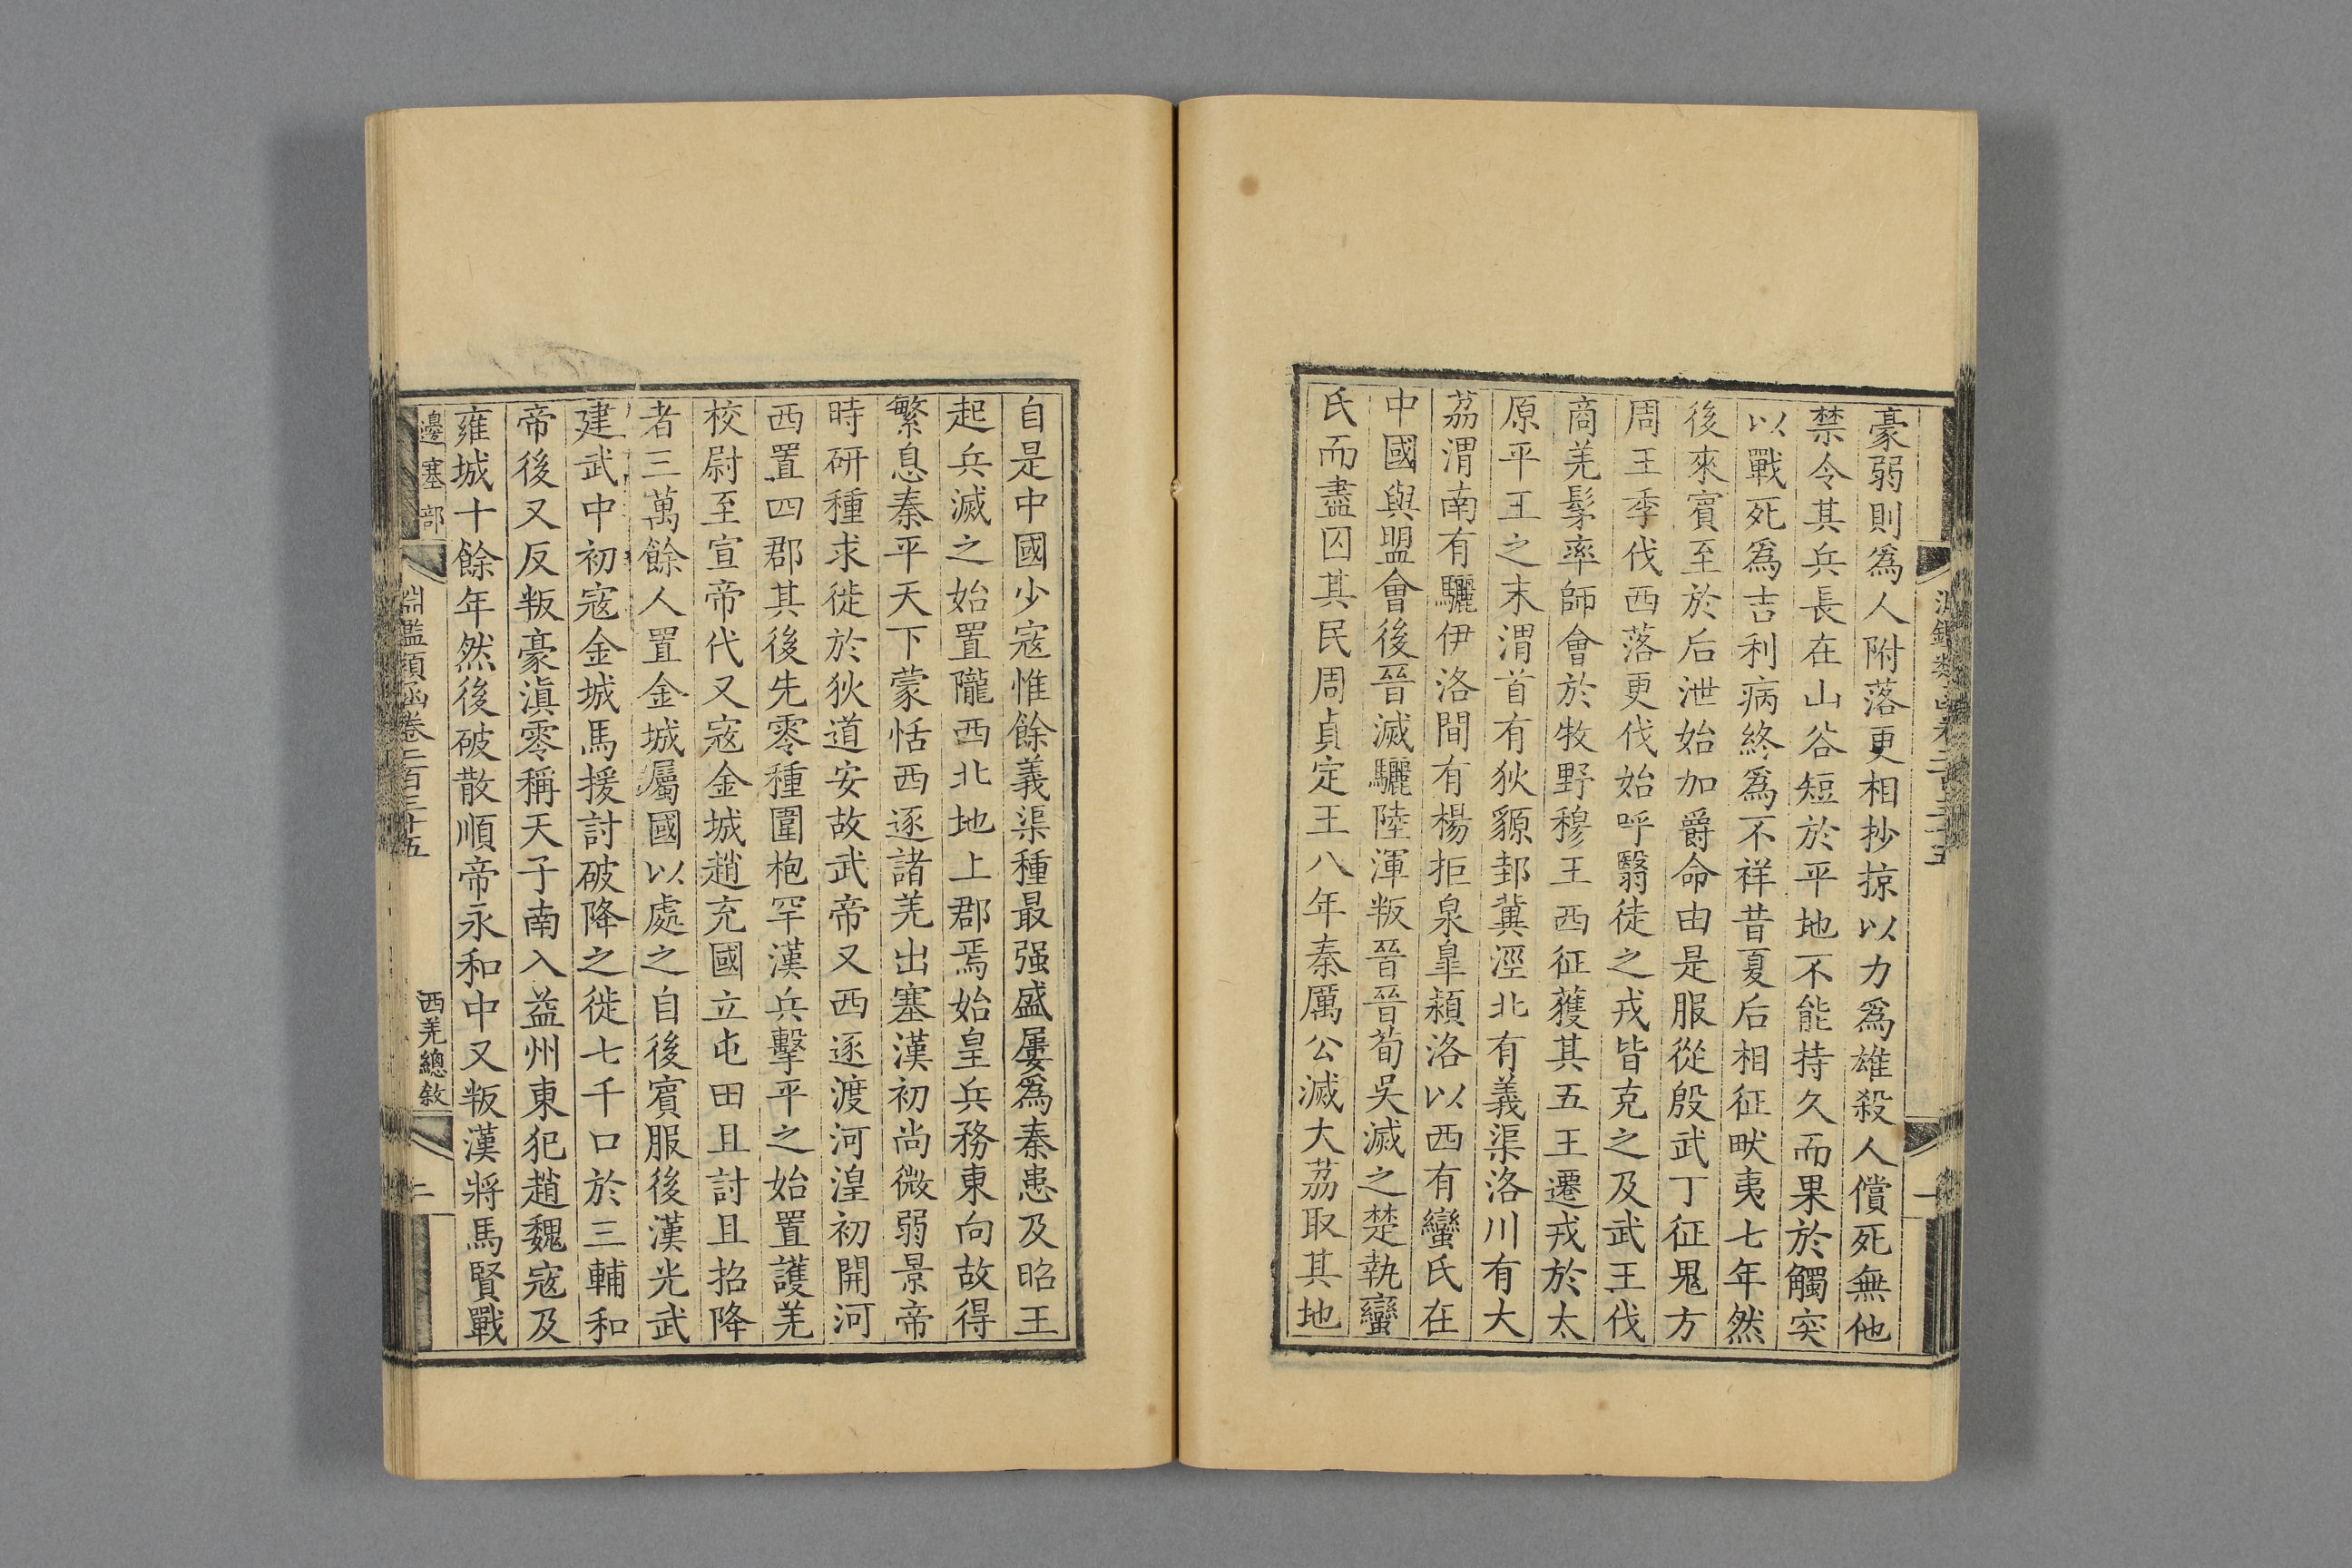 豪弱則爲人附落更相抄掠以力爲雄殺人償死無他
禁令其兵長在山谷短於平地不能持久而果於觸突
以戰死爲吉利病終爲不祥昔夏后相征畎夷七年然
後來賓至於后泄始加爵命由是服從殷武丁征鬼方
周王季伐西落更伐始呼翳徒之戎皆克之及武王伐
商羌髳率師會於牧野穆王西征獲其五王遷戎於太
原平王之末渭首有狄獂邽冀涇北有義渠洛川有大
荔渭南有驪伊洛間有楊拒泉皐潁洛以西有蠻氏在
中國與盟會後晉滅驪陸渾叛晉晉荀吳滅之楚執蠻
氏而盡囚其民周貞定王八年秦厲公滅大荔取其地
自是中國少寇惟餘義渠種最强盛屢爲秦患及昭王
起兵滅之始置隴西北地上郡焉始皇兵務東向故得
繁息秦平天下蒙恬西逐諸羌出塞漢初尚微弱景帝
時研種求徙於狄道安故武帝又西逐渡河湟初開河
西置四郡其後先零種圍枹罕漢兵擊平之始置護羌
校尉至宣帝代又寇金城趙充國立屯田且討且招降
者三萬餘人置金城屬國以處之自後賓服後漢光武
建武中初寇金城馬援討破降之徙七千口於三輔和
帝後又反叛豪滇零稱天子南入益州東犯趙魏寇及
雍城十餘年然後破散順帝永和中又叛漢將馬賢戰
邊塞部
淵鑑類函卷二百三十五
西羌總敘
二